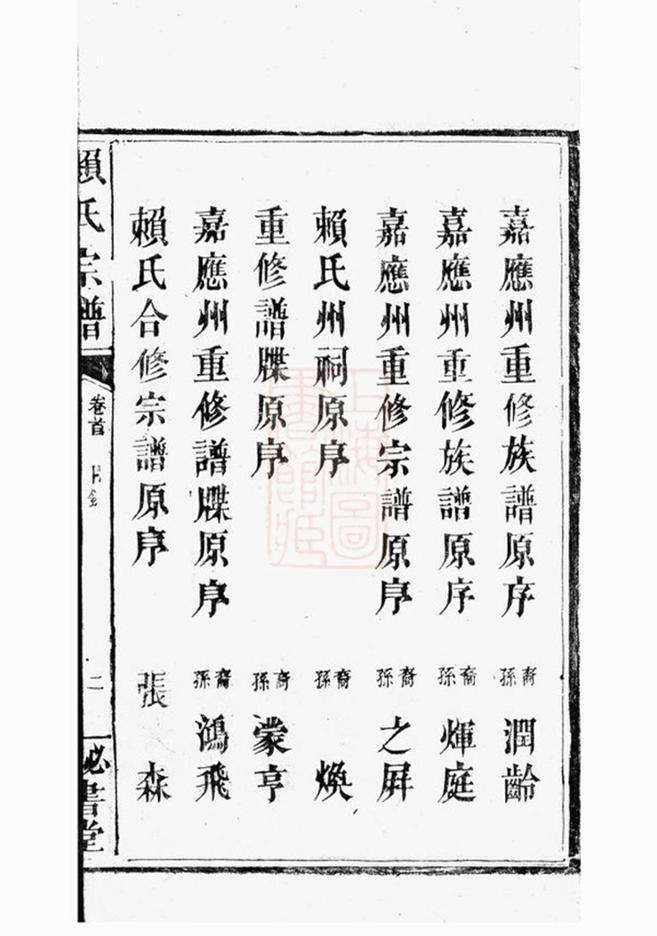 嘉應州重修族譜原序 裔孫 潤齡
嘉應州重修族譜原序 裔孫 煇庭
嘉應州重修宗譜原序 裔孫 之屛
賴氏州祠原序 裔孫 煥
重修譜牒原序 裔孫 蒙亨
嘉應州重修譜牒原序 裔孫 鴻飛
賴氏合修宗譜原序 張森
賴氏宗譜 卷首 二 必書堂
上海圖書館藏